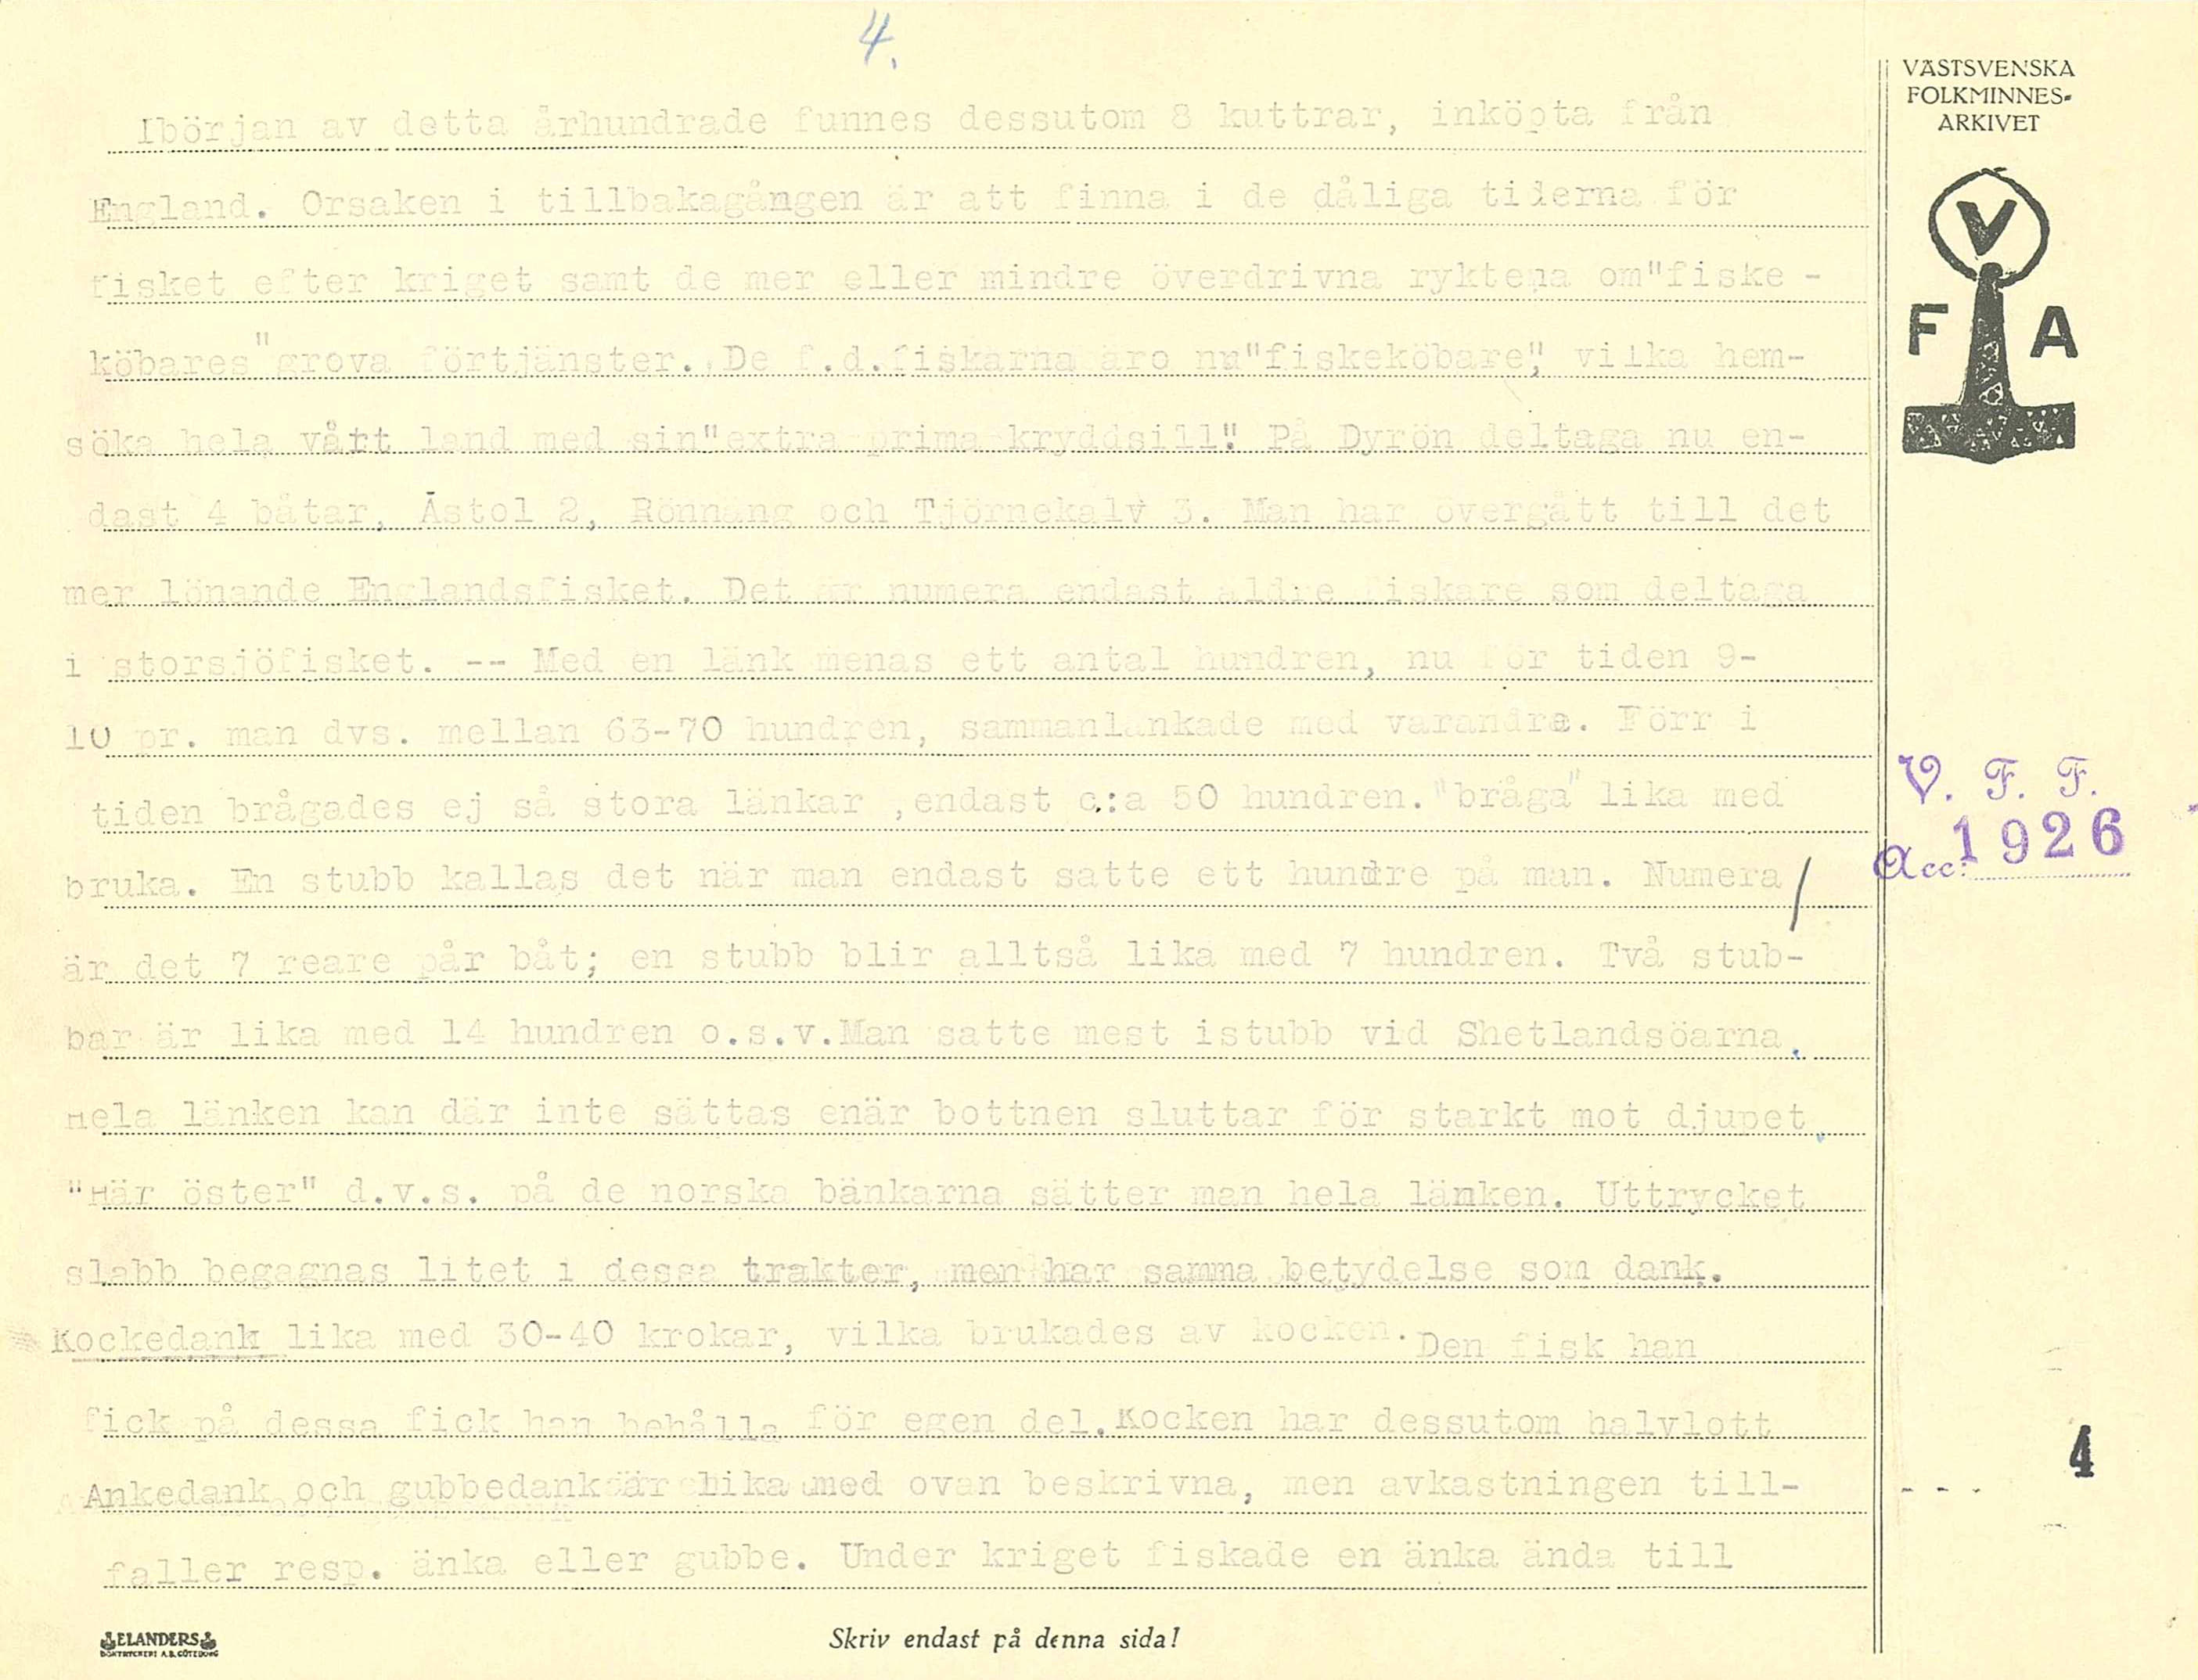 4.
VÄSTSVENSKA
FOLKMINNES-
ARKIVET
V
F A
Ibörjan av detta århundrade funnes dessutom 8 kuttrar, inköpta från
England. Orsaken i tillbakagången är att finna i de dåliga tiderna för
fisket efter kriget samt de mer eller mindre överdrivna ryktena om"fiske -
köbares" grova förtjänster. De f.d.fiskarna äro nu"fiskeköbare", vilka hem-
söka hela vårt land med sin"extra prima kryddsill". På Dyrön deltaga nu en-
dast 4 båtar, Åstol 2, Rönnäng och Tjörnekalv 3. Man har övergått till det
mer lönande Englandsfisket. Det är numera endast äldre fiskare som deltaga
i storsjöfisket. -- Med en länk menas ett antal hundren, nu för tiden 9-
10 pr. man dvs. mellan 63-70 hundren, sammanlänkade med varandra. Förr i
tiden brågades ej så stora länkar ,endast c:a 50 hundren. "bråga" lika med
bruka. En stubb kallas det när man endast satte ett hundre på man. Numera/
är det 7 reare pår båt; en stubb blir alltså lika med 7 hundren. Två stub-
bar är lika med 14 hundren o.s.v.Man satte mest istubb vid Shetlandsöarna.
Hela länken kan där inte sättas enär bottnen sluttar för starkt mot djupet.
"Här öster" d.v.s. på de norska bänkarna sätter man hela länken. Uttrycket
slabb begagnas litet i dessa trakter, men har samma betydelse som dank.
Kockedank lika med 30-40 krokar, vilka brukades av kocken. Den fisk han
fick på dessa fick han behålla för egen del. Kocken har dessutom halvlott
Ankedank och gubbedank är lika med ovan beskrivna, men avkastningen till-
faller resp. änka eller gubbe. Under kriget fiskade en änka ända till
V. F. F.
Acc: 1926
4
ELANDERS
BOKTRYCKERI A.B. GÖTEBORG
Skriv endast på denna sida!